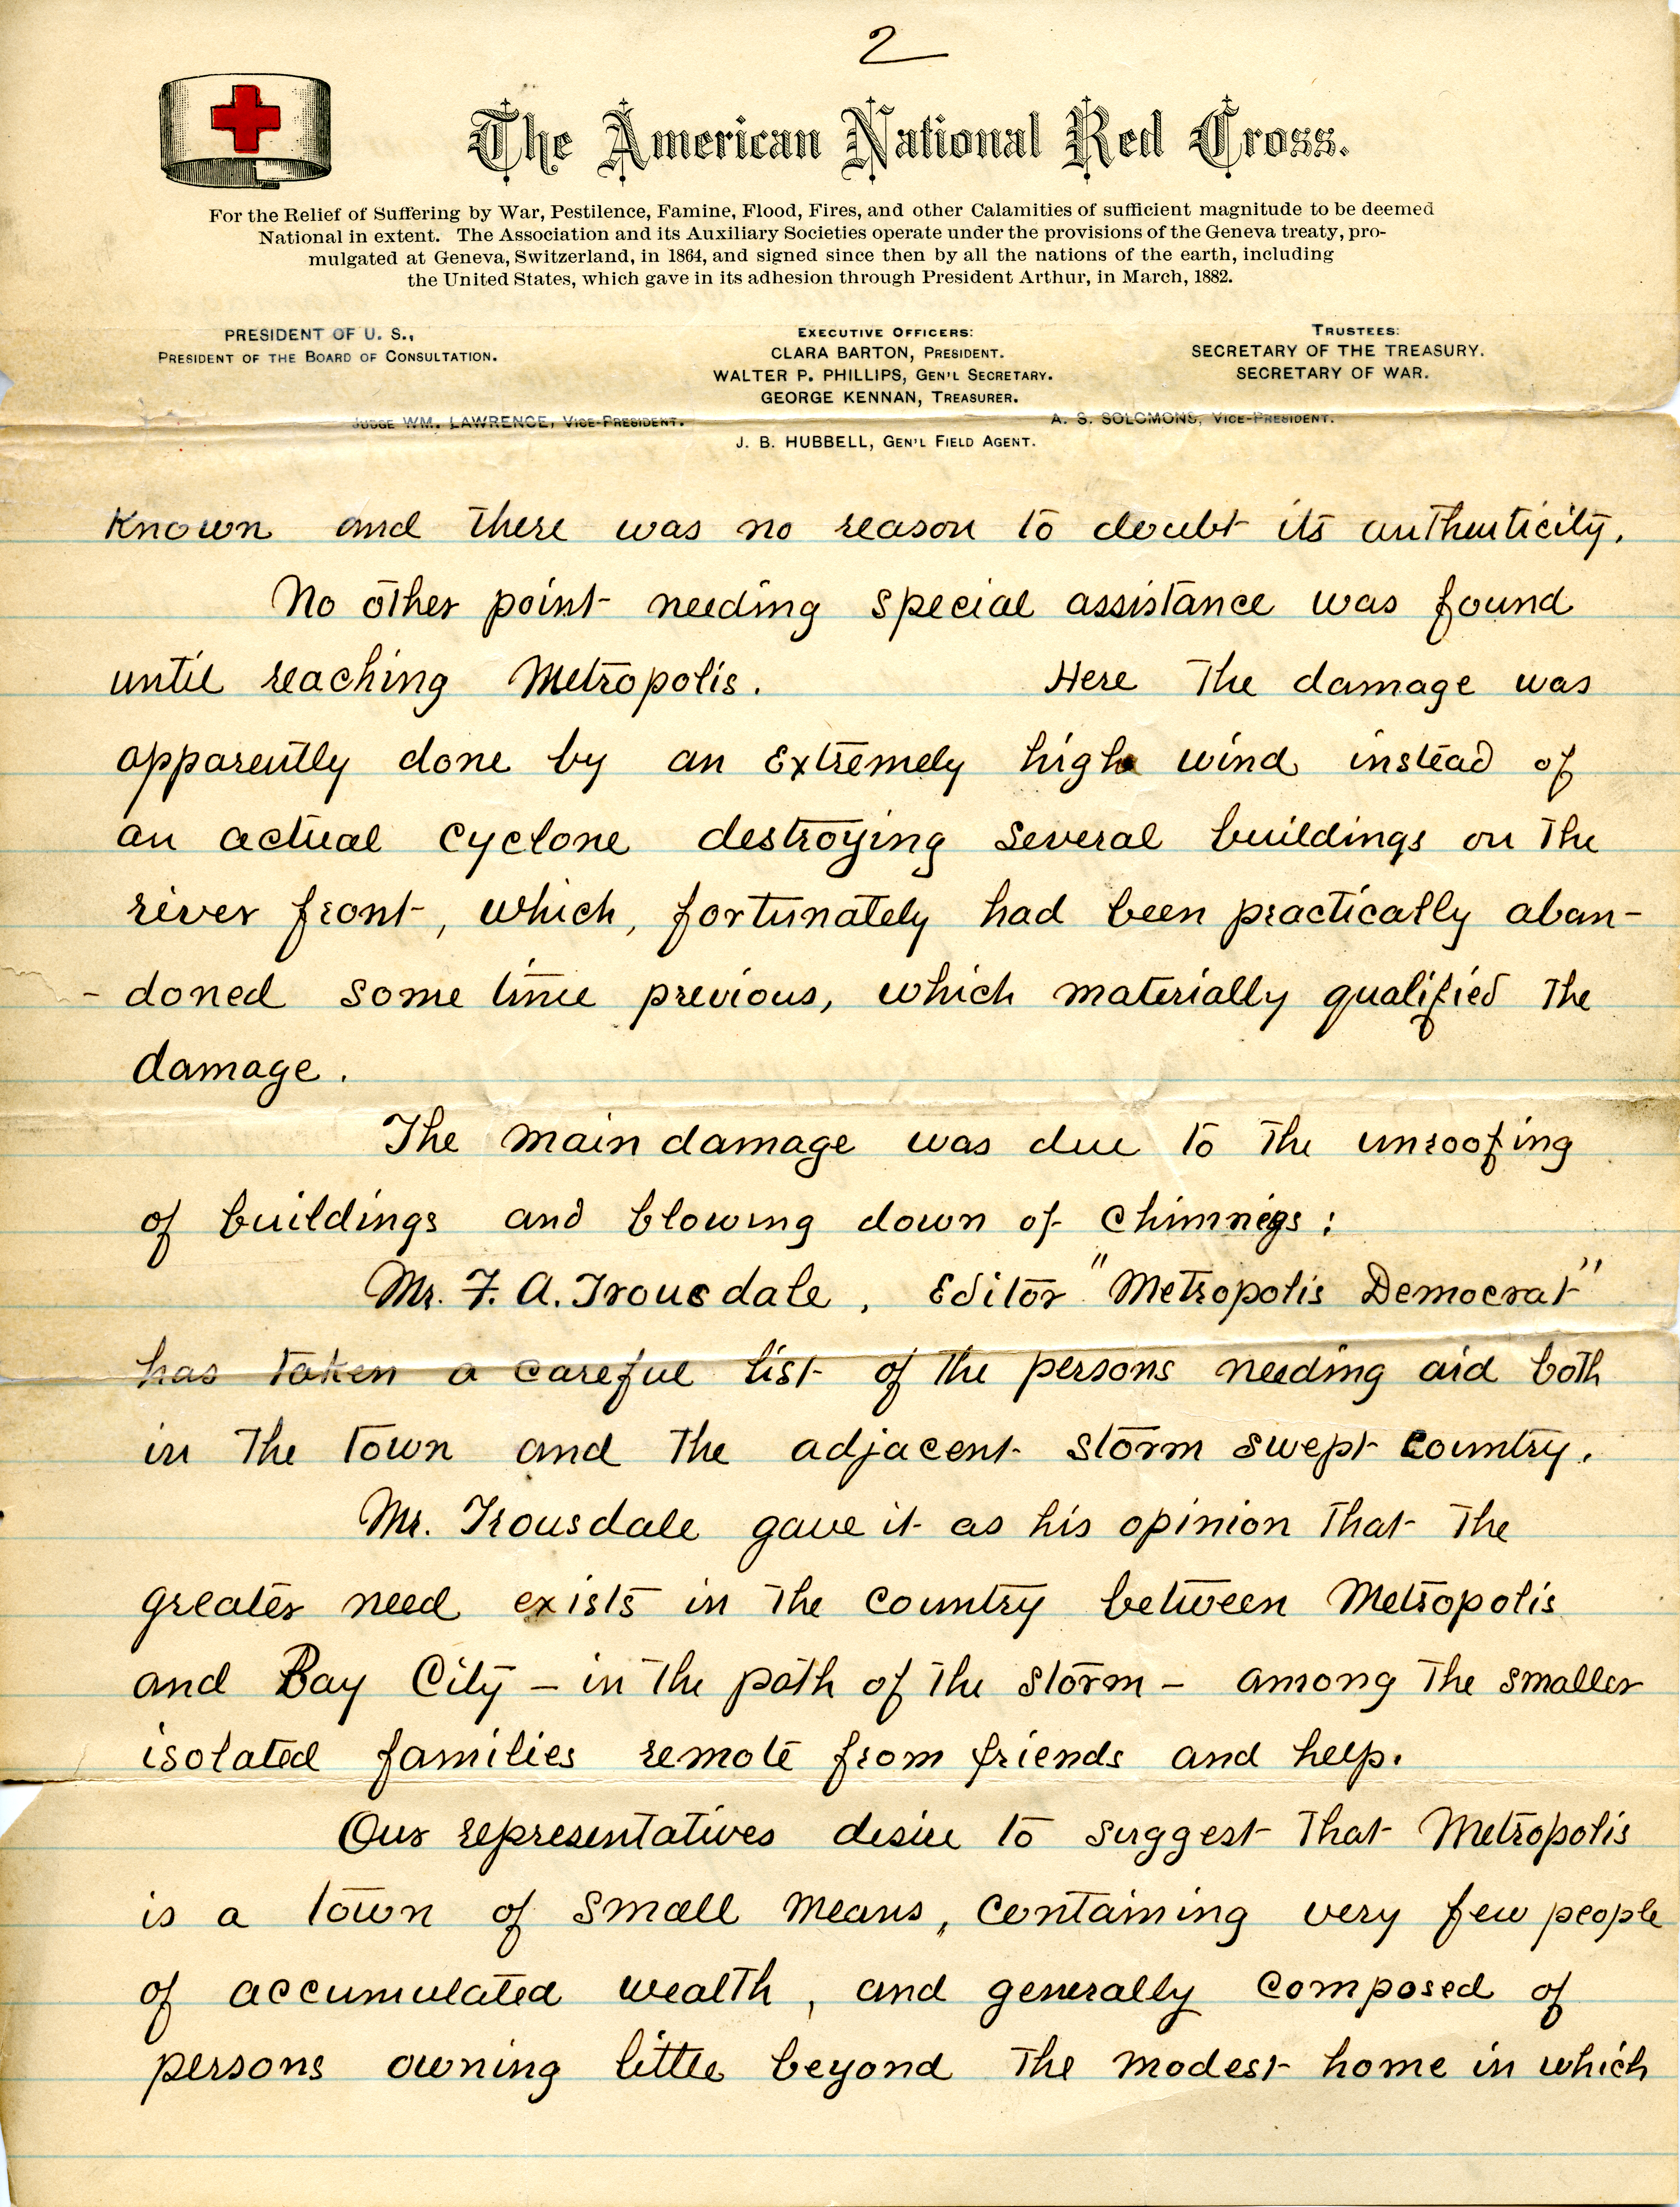 2
The American National Red Cross.
For the Relief of Suffering by War, Pestilence, Famine, Flood, Fires, and other Calamities of sufficient magnitude to be deemed
National in extent. The Association and its Auxiliary Societies operate under the provisions of the Geneva treaty, pro-
mulgated at Geneva, Switzerland, in 1864, and signed since then by all the nations of the earth, including
the United States, which gave in its adhesion through President Arthur, in March, 1882.
PRESIDENT OF U. S.,
PRESIDENT OF THE BOARD OF CONSULTATION.
EXECUTIVE OFFICERS:
CLARA BARTON, PRESIDENT.
WALTER P. PHILLIPS, GEN'L SECRETARY.
GEORGE KENNAN, TREASURER.
TRUSTEES:
SECRETARY OF THE TREASURY.
SECRETARY OF WAR.
JUDGE WM. LAWRENCE, VICE-PRESIDENT.
A. S. SOLOMONS, VICE-PRESIDENT.
J. B. HUBBELL, GEN'L FIELD AGENT.
Known and there was no reason to doubt its authenticity.
No other point needing special assistance was found
until reaching Metropolis. Here the damage was
apparently done by an extremely high wind instead of
an actual cyclone destroying several buildings on the
river front, which, fortunately had been practically aban-
-doned some time previous, which materially qualified the
damage.
The main damage was due to the unroofing
of buildings and blowing down of chimneys:
Mr. F. A. Trousdale, Editor "Metropolis Democrat"
has taken a careful list of the persons needing aid both
in the town and the adjacent storm swept country.
Mr. Trousdale gave it as his opinion that the
greater need exists in the country between Metropolis
and Bay City – in the path of the storm – among the smaller
isolated families remote from friends and help.
Our representatives desire to suggest that Metropolis
is a town of small means, containing very few people
of accumulated wealth, and generally composed of
persons owning little beyond the modest home in which